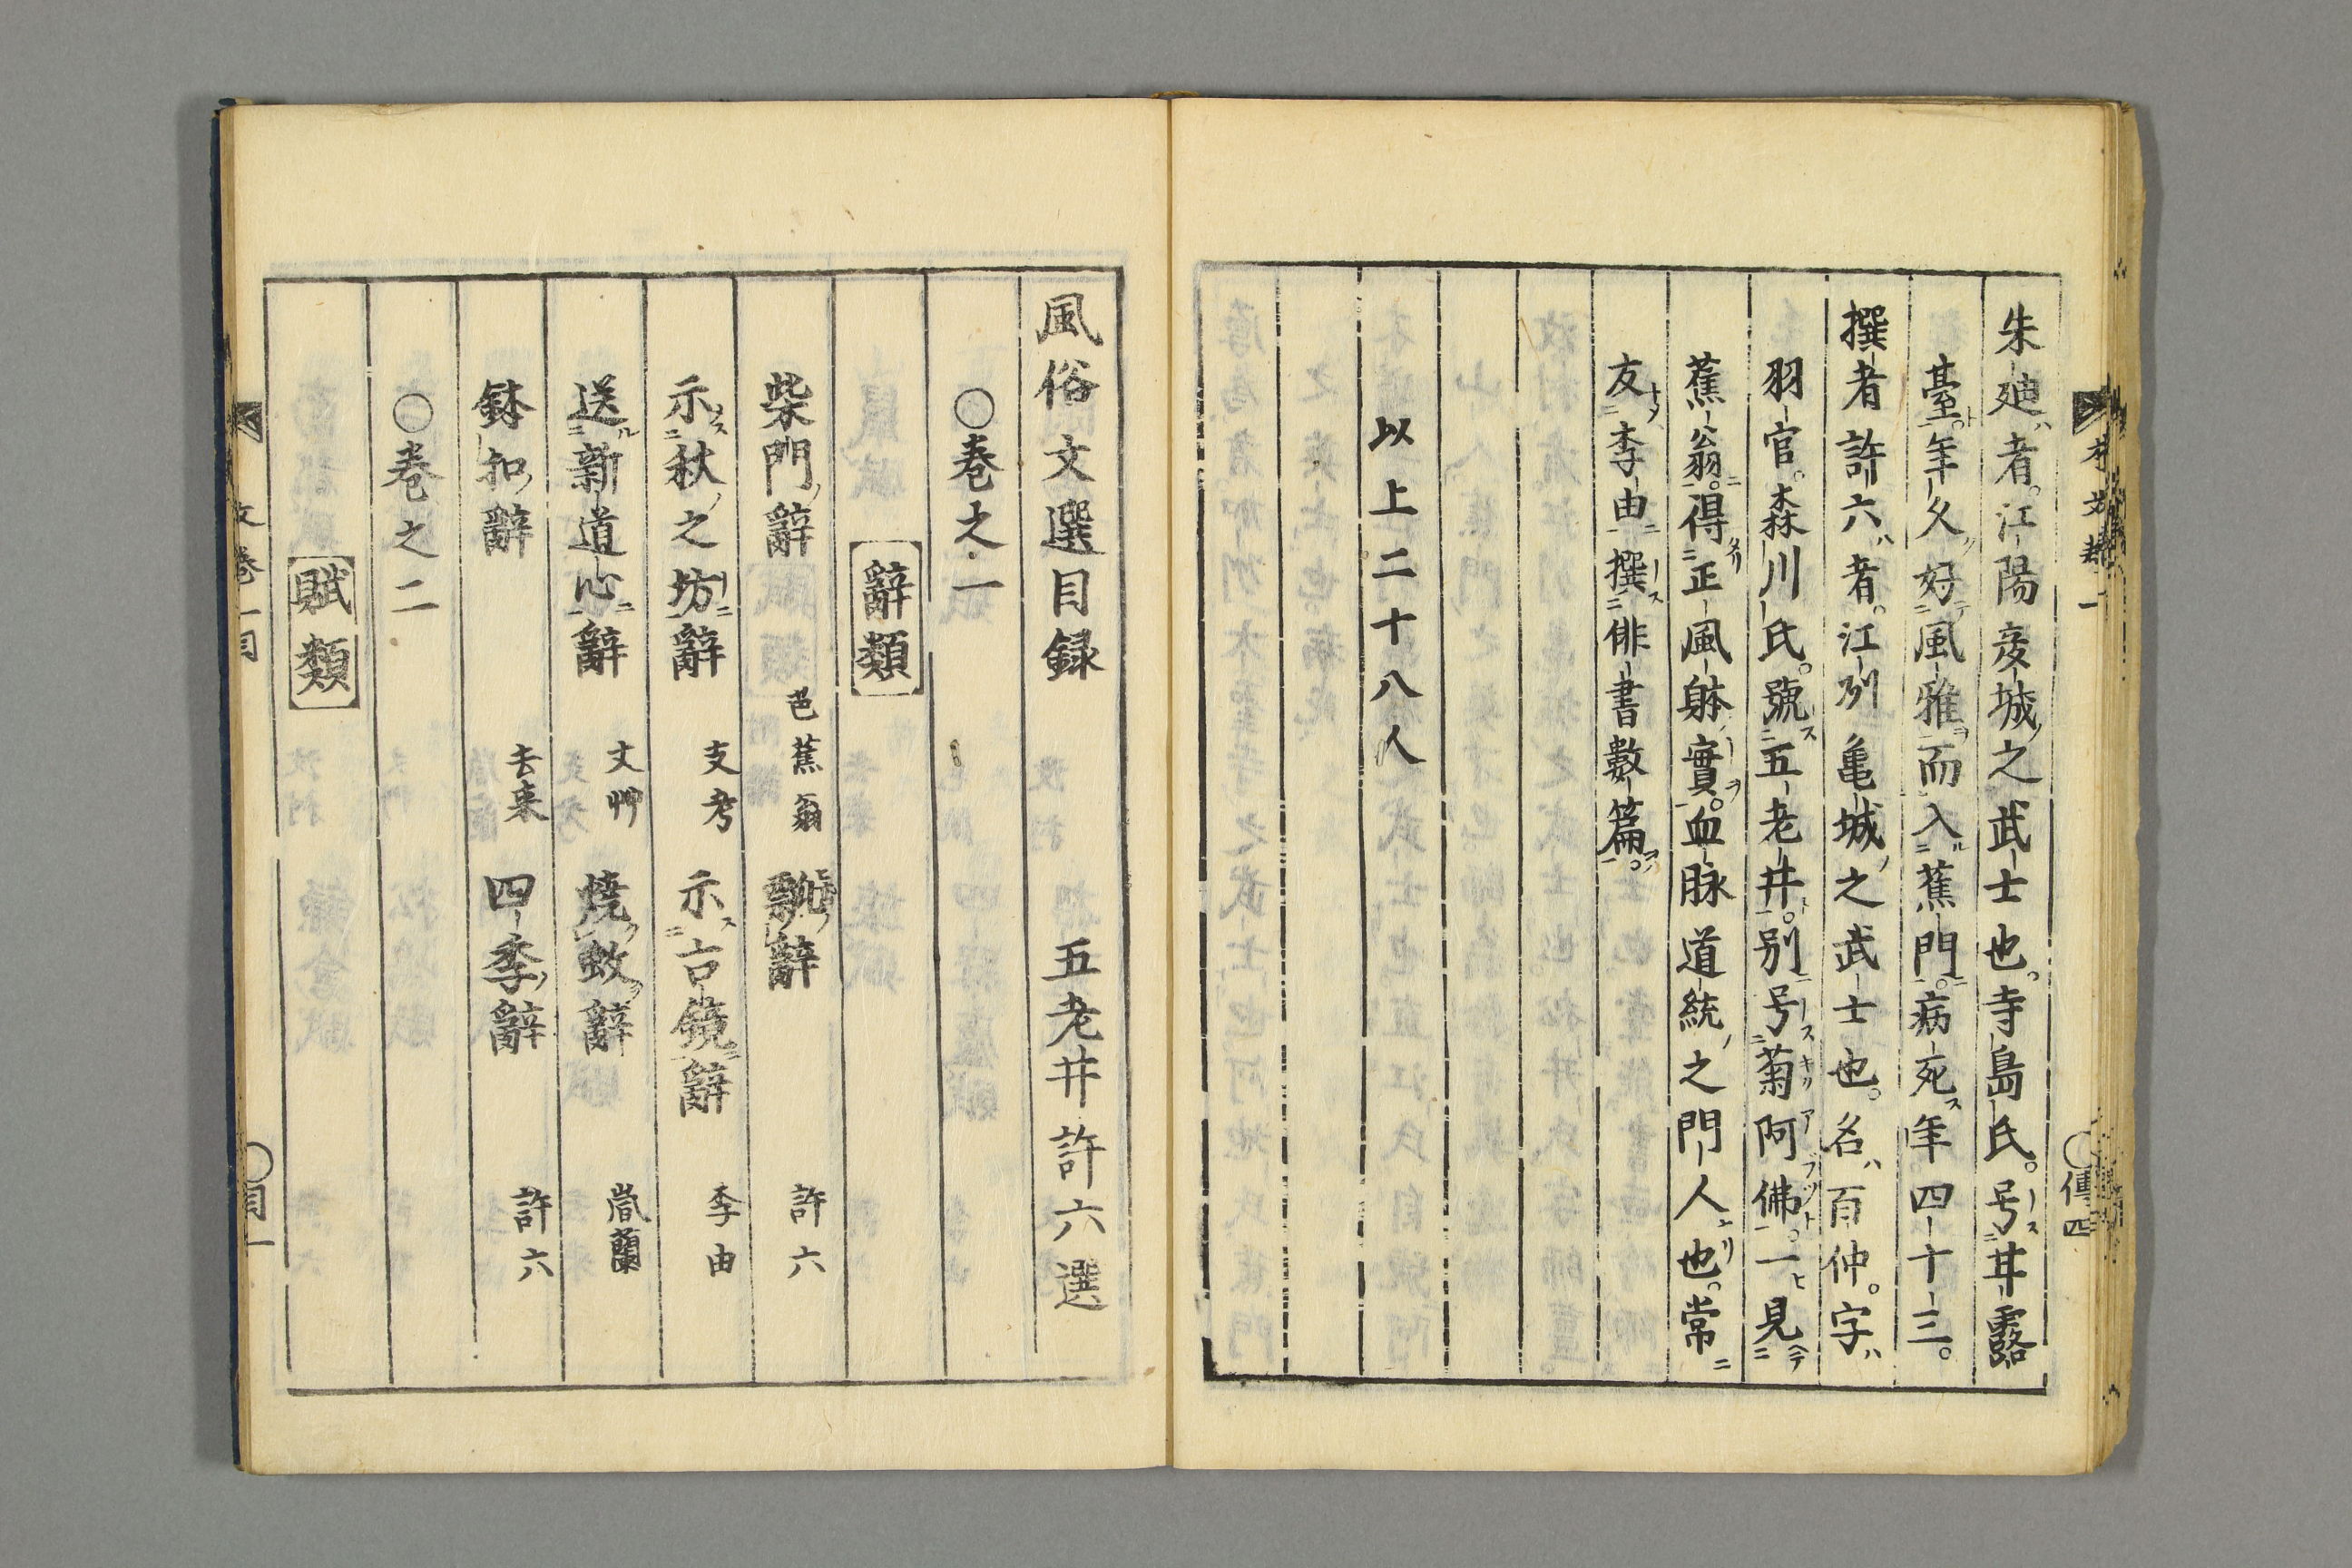 朱廸者。江陽彦城之武士也。寺島氏。号井露
臺。年久好風雅而入蕉門。病死年四十三。
撰者許六者。江州亀城之武士也。名百仲。字
羽官。森川氏。號五老井。別号菊阿佛。一見
蕉翁。得正風躰實。血脉道統之門人也。常
友李由撰俳書數篇。
以上二十八人
傳四
風俗文選目録 五老井許六選
○巻之一
辭類
柴門辭 芭蕉翁 瓢辭 許六
示秋之坊辭 支考 示古鏡辭 李由
送新道心辭 丈艸 燒蚊辭 嵐蘭
鉢扣辭 去来 四季辭 許六
○巻之二
賦類